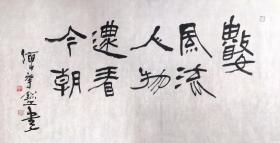 數
風流
人物
還看
今朝